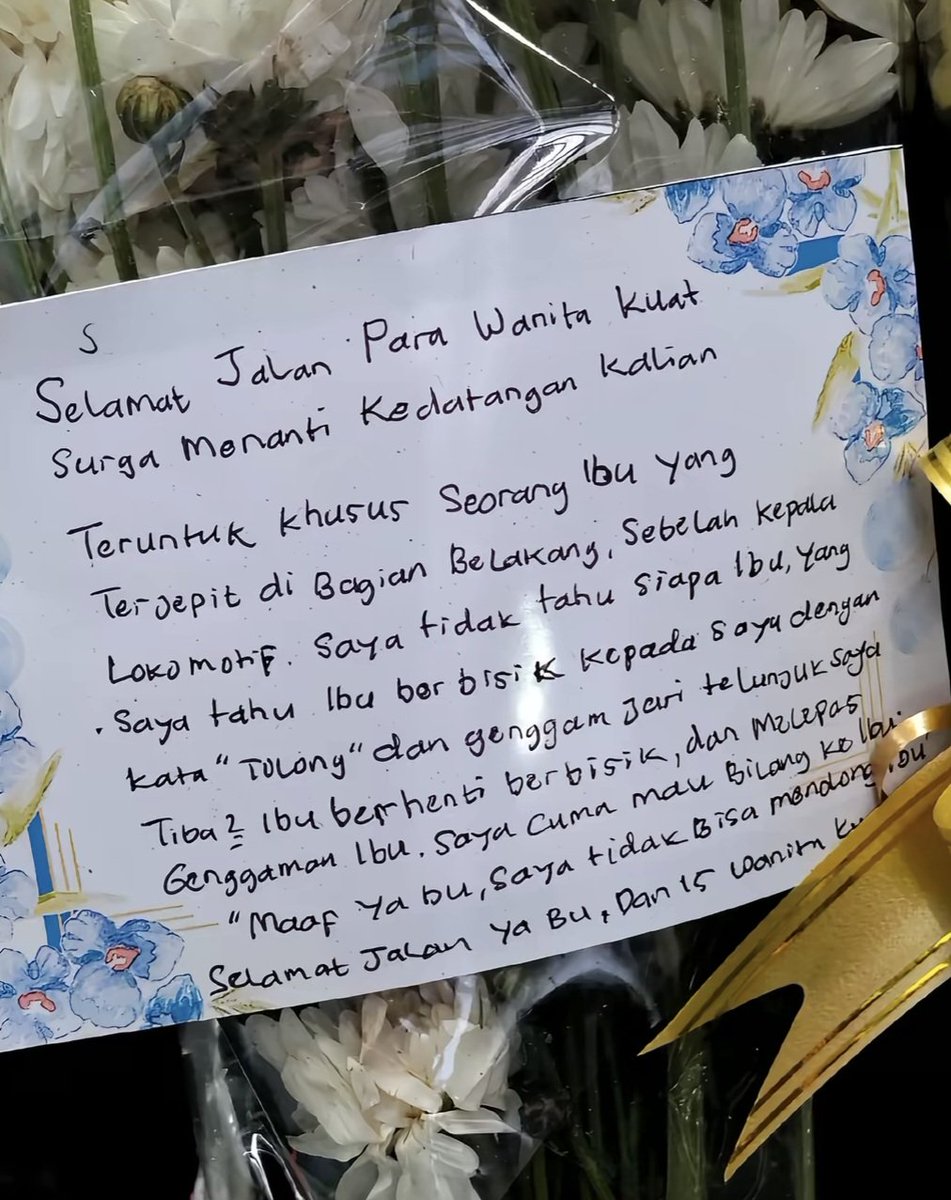 S
Selamat Jalan Para Wanita Kuat
Surga Menanti Kedatangan Kalian
Teruntuk Khusus Seorang Ibu Yang
Terjepit di Bagian Belakang, Sebelah Kepala
Lokomotif. Saya tidak tahu siapa Ibu, Yang
Saya tahu Ibu berbisik kepada saya dengan
kata "TOLONG" dan genggam Jari telunjuk saya
Tiba2 Ibu berhenti berbisik, dan Melepas
Genggaman Ibu. Saya Cuma mau Bilang Ke Ibu.
"Maaf Ya bu, Saya tidak Bisa mendong Ibu
Selamat Jalan Ya Bu, Dan 15 wanita